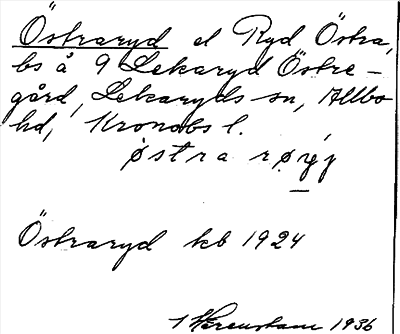 Östraryd el Ryd Östra,
bs å 9 Lekaryd Östre-
gård, Lekaryds sn, Allbo
hd, Kronobs l.
østra
Östraryd kb 1924
1936